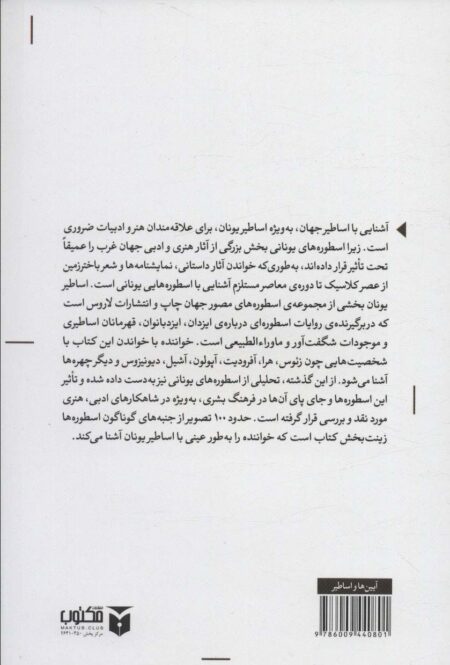 آشنایی با اساطیر جهان، به‌ویژه اساطیر یونان، برای علاقه‌مندان هنر و ادبیات ضروری
است. زیرا اسطوره‌های یونانی بخش بزرگی از آثار هنری و ادبی جهان غرب را عمیقاً
تحت تأثیر قرار داده‌اند، به‌طوری‌که خواندن آثار داستانی، نمایشنامه‌ها و شعر باختر‌زمین
از عصر کلاسیک تا دوره‌ی معاصر مستلزم آشنایی با اسطوره‌هایی یونانی است. اساطیر
یونان بخشی از مجموعه‌ی اسطوره‌های مصور جهان چاپ و انتشارات لاروس است
که دربرگیرنده‌ی روایات اسطوره‌ای درباره‌ی ایزدان، ایزدبانوان، قهرمانان اساطیری
و موجودات شگفت‌آور و ماوراءالطبیعی است. خواننده با خواندن این کتاب با
شخصیت‌هایی چون زئوس، هرا، آفرودیت، آپولون، آشیل، دیونیزوس و دیگر چهره‌ها
آشنا می‌شود. از این گذشته، تحلیلی از اسطوره‌های یونانی نیز به‌دست داده شده و تأثیر
این اسطوره‌ها و جای پای آن‌ها در فرهنگ بشری، به‌ویژه در شاهکارهای ادبی، هنری
مورد نقد و بررسی قرار گرفته است. حدود ۱۰۰ تصویر از جنبه‌های گوناگون اسطوره‌ها
زینت‌بخش کتاب است که خواننده را به‌طور عینی با اساطیر یونان آشنا می‌کند.
آیین‌ها و اساطیر
مکتوب
MAKTUB.CLUB
مرکز پخش
9 786009 440801